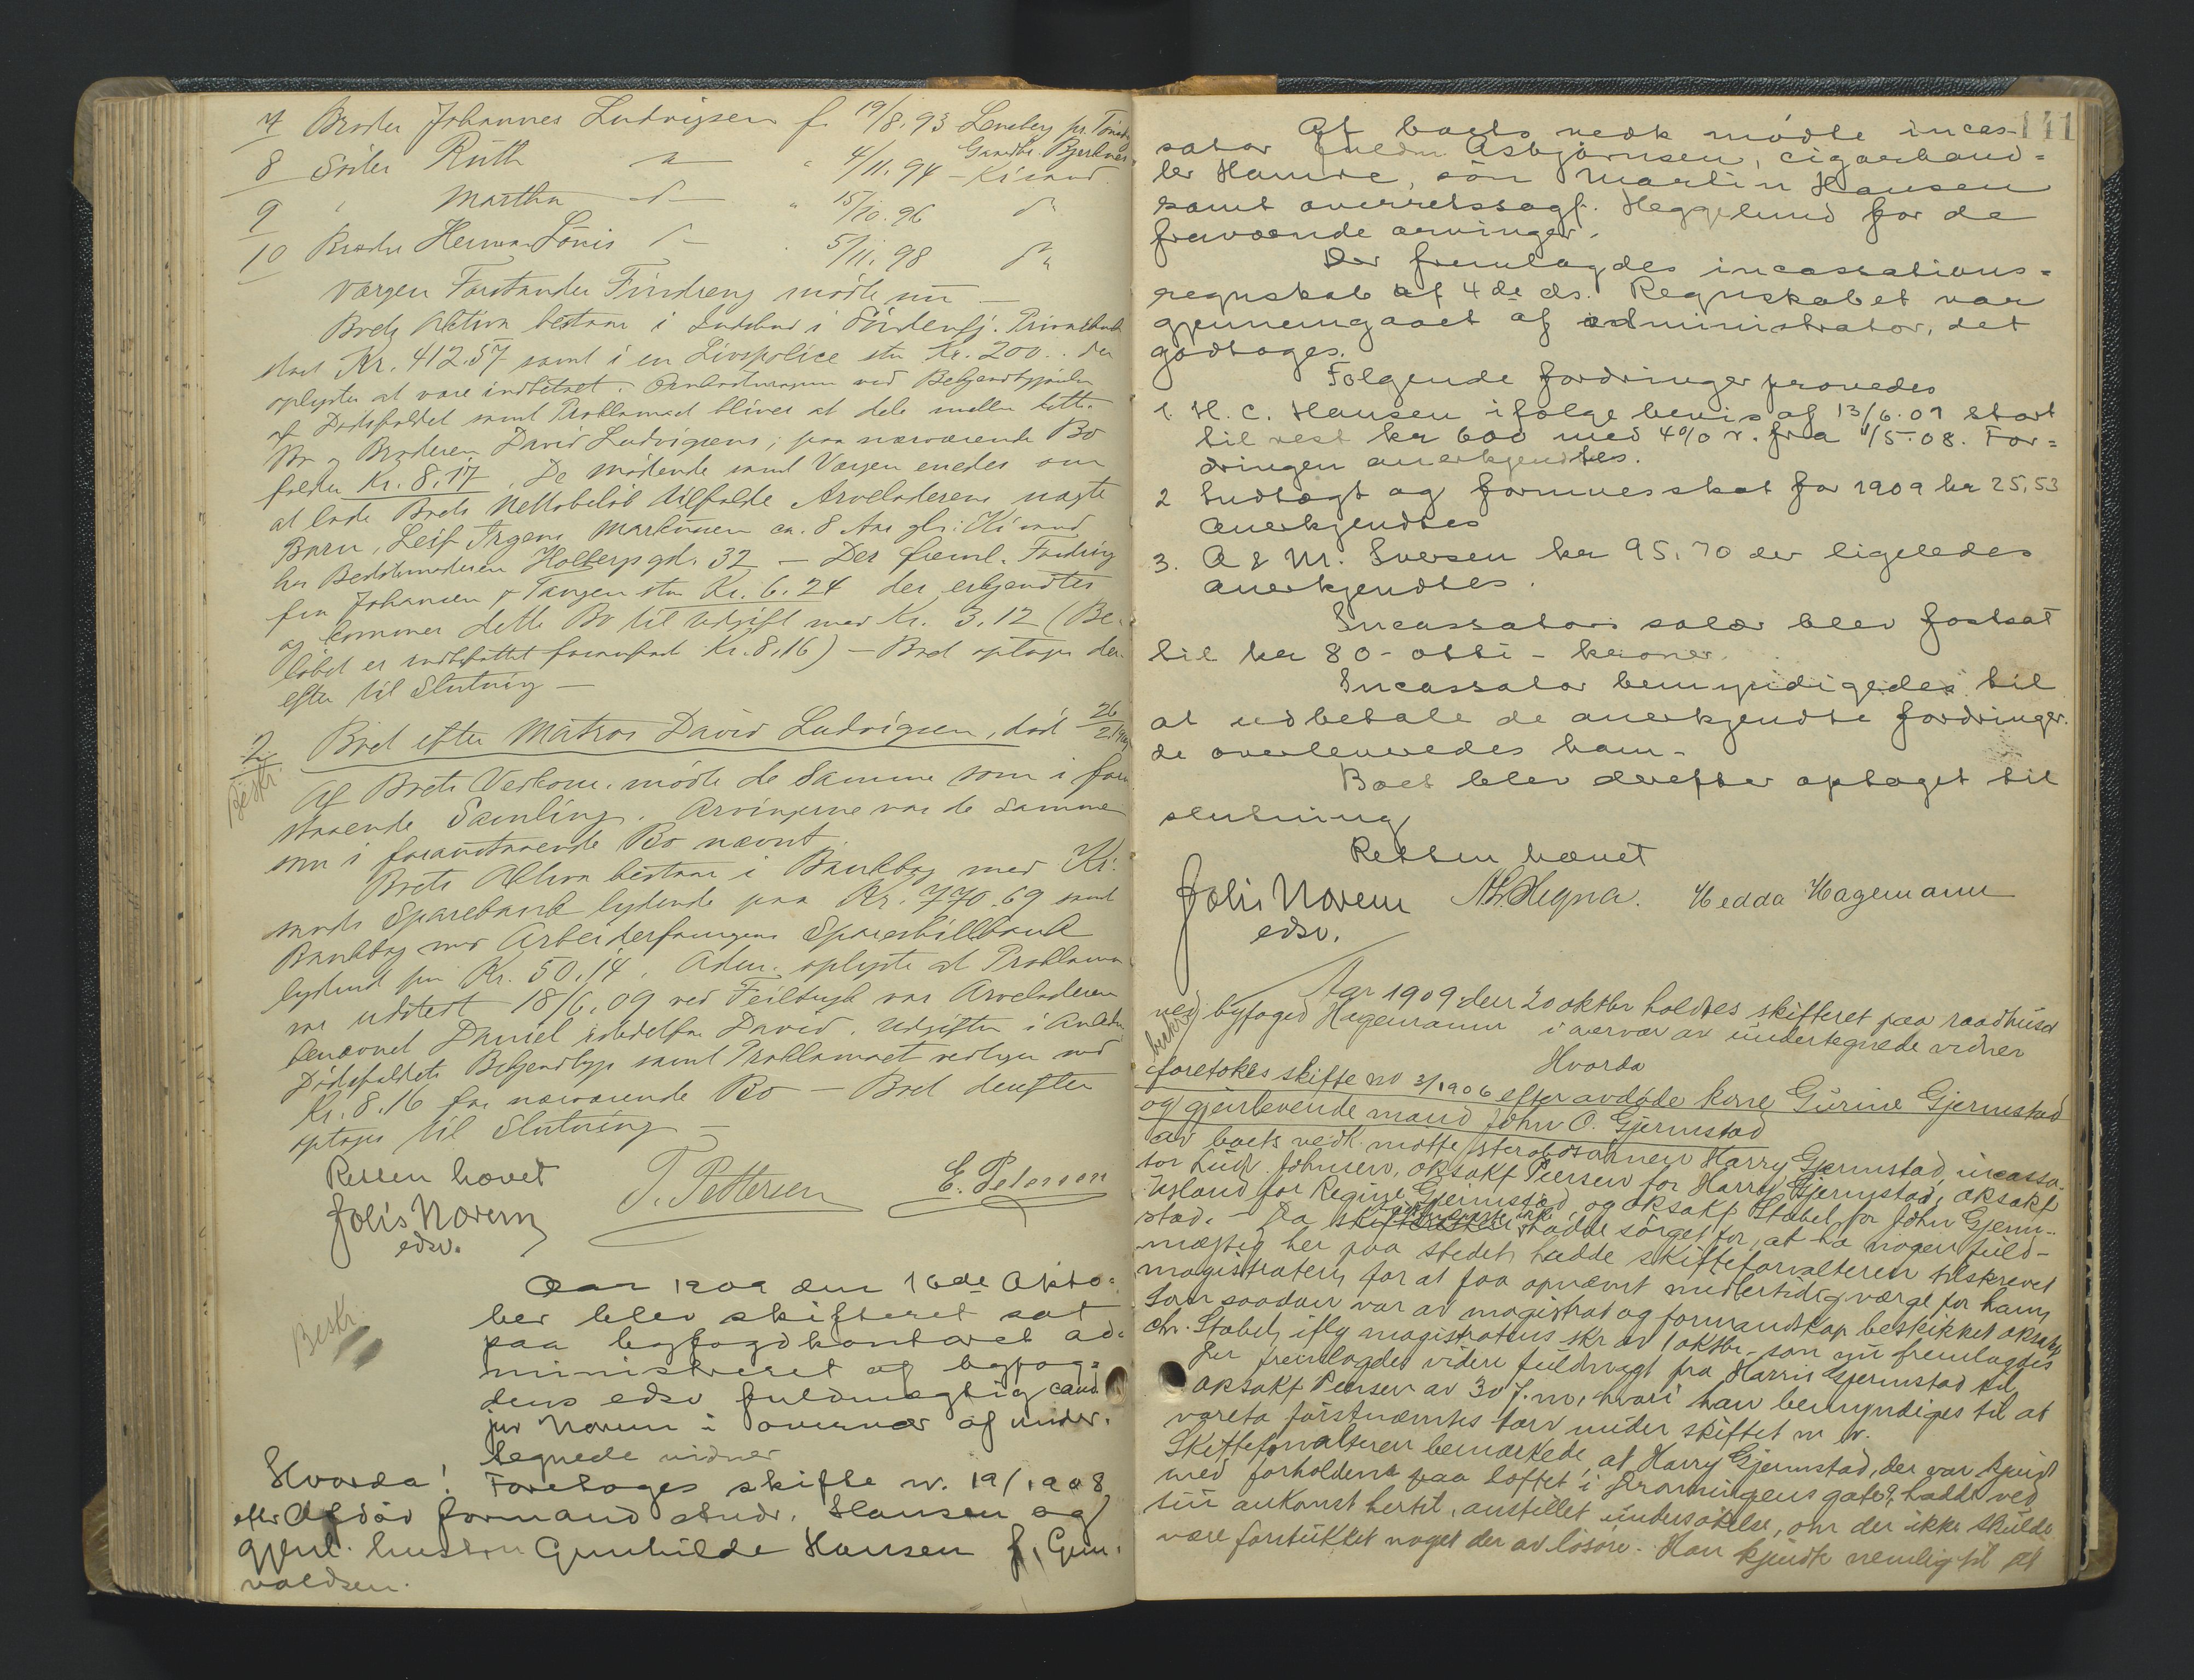 7 Broder Johannes Ludvigsen f. 19/8. 93 Leneberg pr. 
Gaardbr. Bjerknes
8 Söster Ruth 4/11. 94 – Krsand.
9 Martha d– 15/10. 96 do
10 Broder Herman Lönis d– 5/11. 98 do
Værgen Forstander Findreng mödte nu –
Boets Aktiva bestaar i Indskud i Privatbank
stort Kr. 412.57 samt i en Livspolice stor Kr. 200.. der
oplystes at være indbetalt. ved Bekjendtgjörelse
af Dödsfaldet samt Proklamaet bliver at dele mellem dette
Bo og Broderen David Ludvigsens; paa nærværende Bo
falder Kr. 8.17. De mödende samt Værgen enedes om
at lade Boets Nettobelöb tilfalde Arveladerens uægte
Barn, Leif Trygve Markussen ca. 8 Aar gl.: Krsand
hos Bedstemoderen Holbergs gd. 32 – Der freml. Fordring
fra Johansen & Tangen stor Kr. 6.24 der erkjendtes
og kommer dette Bo til Udgift med Kr. 3.12 (Be-
löbet er indbefattet foranförte Kr. 8,16) – Boet optages der-
efter til Slutning –
2 Boet efter Matros David Ludvigsen, död 26/2 1909
Beskr.
Af Boets Vedkom. mödte de Samme som i foran
staaende Samling. Arvingerne var de Samme
som i foranstaaende Bo nævnt
Boets Aktiva bestaar i Bankbog med Kr.
sands Sparebank lydende paa Kr. 770.69 samt
Bankbog med Arbeiderforeningens Spareskillbank
lydende paa Kr. 50.14. Adm. oplyste at Proklama
var udstedt 18/6.09 ved Feiltryk var Arveladeren
benævnt Daniel istedetfor David. Udgifter i Anledn.
Dödsfaldets Bekjendtgj. samt Proklamaet vedtages med
Kr. 8.16 for nærværende Bo – Boet derefter
optages til Slutning –
Retten hævet
Joh.s Norem
edsv.
T. Pettersen
E. Petersen
Beskr.
Aar 1909 den 16de Okto-
ber blev skifteret sat
paa byfogdkontoret ad-
ministreret af byfog-
dens edsv fuldmægtig cand
jur Norem i overvær af under-
tegnede vidner
Hvorda! Foretoges skifte nr. 19/1908
efter Afdöd formand Andr. Hansen og
gjenl. hustru Gunhilde Hansen f. Gun-
valdsen.
141
Af boets vedk mödte incas-
sator Asbjörnsen, cigarhand-
ler Hamre, sön Martin Hansen
samt overretssagf. Heggelund for de
fraværende arvinger.
Der fremlagdes incassations-
regnskab af 4de ds. Regnskabet var
gjennemgaaet af administrator, det
godtoges.
Fölgende fordringer prövedes
1. H. C. Hansen ifölge bevis af 13/6.07 stort
til rest kr 600 med 4% r. fra 11/5.08. For-
dringen anerkjendtes.
2 Indtægt og formuesskat for 1909 kr 25,53
anerkjendtes
3. A & M. Iversen kr 95,70 der ligeledes
anerkjendtes.
Incassators salær blev fastsat
til kr 80 – otti – kroner.
Incassator bemyndigedes til
at udbetale de anerkjendte fordringer.
de overleveredes ham –
Boet blev derefter optaget til
slutning
Retten hævet
Joh.s Norem
edsv.
Hedda Hagemann
Aar 1909 den 20 oktbr holdtes skifteret paa raadhuset
ved byfoged Hagemann i nærvær av undertegnede vidner
Hvorda
foretokes skifte no 3/1906 efter avdöde kone Gurine Gjermstad
og gjenlevende mand John O. Gjermstad
Av boets vedk. mötte sterbosönnen Harry Gjermstad, incassa-
tor Ludv. Johnsen, oksakf Peersen for Harry Gjermstad, oksakf
Usland for Regine Gjermstad og oksakf Stabel for John Gjerm-
stad. – Da hadde sörget for, at ha nogen fuld-
mægtig her paa stedet hadde skifteforvalteren tilskrevet
magistraten, for at faa opnævnt midlertidig værge for ham,
Som saadan var av magistrat og formandskap beskikket oksakf
Chr. Stabel, iflg magistratens skr av 1 oktbr. som nu fremlagdes
Der fremlagdes videre fuldmagt fra Harris Gjermstad til
oksakf Peersen av 30 f. m., hvori han bemyndiges til at
vareta förstnævntes tarv under skiftet m. v.
Skifteforvalteren bemærkede, at Harry Gjermstad, der var kjendt
med forholdene paa loftet i Dronningens gate 9, hadde ved
sin ankomst hertil, anstillet undersökelse, om der ikke skulde
være forstukket noget der av lösöre. Han kjendte nemlig til at